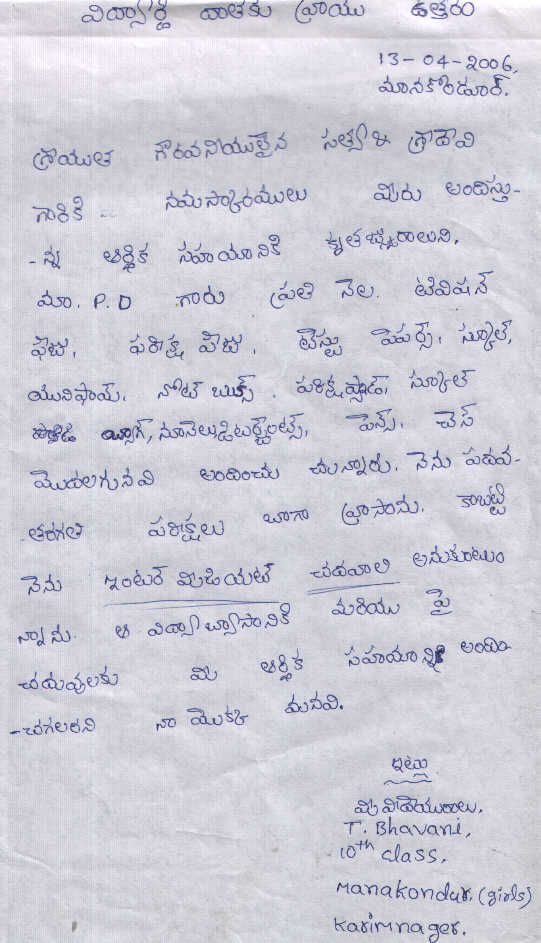 విద్యార్థి దాతకు వ్రాయు ఉత్తరం
13-04-2006,
మానకొండూర్.
శ్రీయుత గౌరవనీయులైన సత్యశ్రీ శ్రీదేవి
గారికి నమస్కారములు మీరు అందిస్తు-
-న్న ఆర్థిక సహయానికి కృతజ్ఞురాలుని.
మా. P.D గారు ప్రతి నెల. టివిషన్
ఫీజు, పరిక్ష ఫీజు, టెస్టు పేపర్స్, స్కూల్,
యునిఫామ్, నోట్ బుక్స్. పరిక్షప్యాడ్, స్కూల్
బ్యాగ్, నూనెలు, డిటర్జెంట్స్, పెన్స్, చెస్
మొదలగునవి అందించు చున్నారు. నేను పదవ-
తరగతి పరిక్షలు బాగా వ్రాసాను. కాబట్టి
నేను ఇంటర్ మీడియట్ చదవాలి అనుకుటుం
న్నాను. ఆ విద్యాబ్యాసానికి మరియు పై
చదువులకు మీ ఆర్థిక సహయాన్ని అందిం-
-చగలరని నా యొక్క మనవి.
ఇట్లు
మీ విదేయురాలు,
T. Bhavani,
10th class,
Manakondur. (girls)
Karimnager.